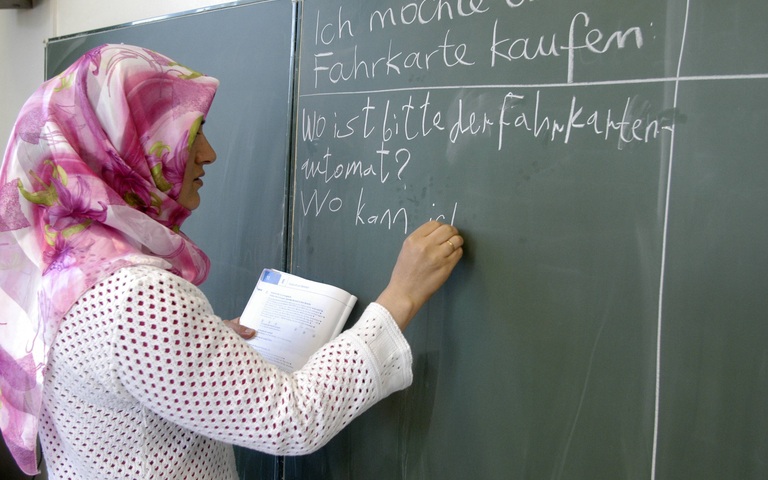 Ich möchte
Fahrkarte kaufen.
Wo ist bitte der Fahrkarten-
automat?
Wo kann